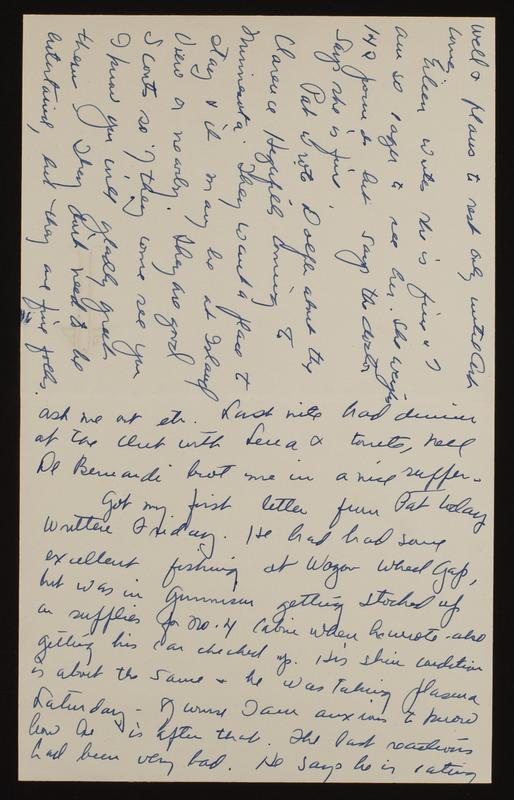 ask me out etc. Last nite had dinner
at the Club with Lena &
De Bernardi brot me in a nice supper.
Got my first letter from Pat today
written Friday. He had had some
excellent fishing at Wagon Wheel Gap,
but was in Gunnison getting stocked up
on supplies for no. 4 Cabin when he wrote - also
getting his car checked up. His skin condition
is about the same & he was taking plasma
Saturday - of course I am anxious to know
how he is after that. The last reactions
had been very bad. He says he is eating
well & plans to rest only until
time.
Eileen writes she is fine & I
am so eager to see her. She weighs
142 pounds but says the doctor
says she is fine.
Pat wrote Dolph about the
Clarence coming to
Minnesota. They want a place to
stay & it may be at Island
View or nearby. They are good
Scouts so if they come see you
I know you will gladly greet
them. They don't need to be
entertained, but they are fine folks.